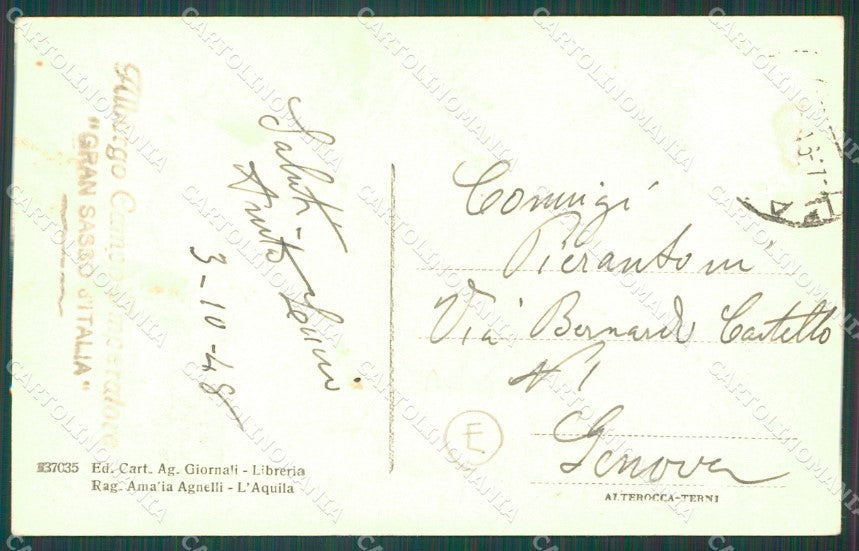 Albergo Campo Imperatore
"GRAN SASSO d'ITALIA"
Saluti
3-10-48
Coniugi
Pierantoni
Via Bernardo Castello
N 1
Genova
E
37035 Ed. Cart. Ag. Giornali - Libreria
Rag. Amalia Agnelli - L'Aquila
ALTEROCCA-TERNI
CARTOLINOMANIA